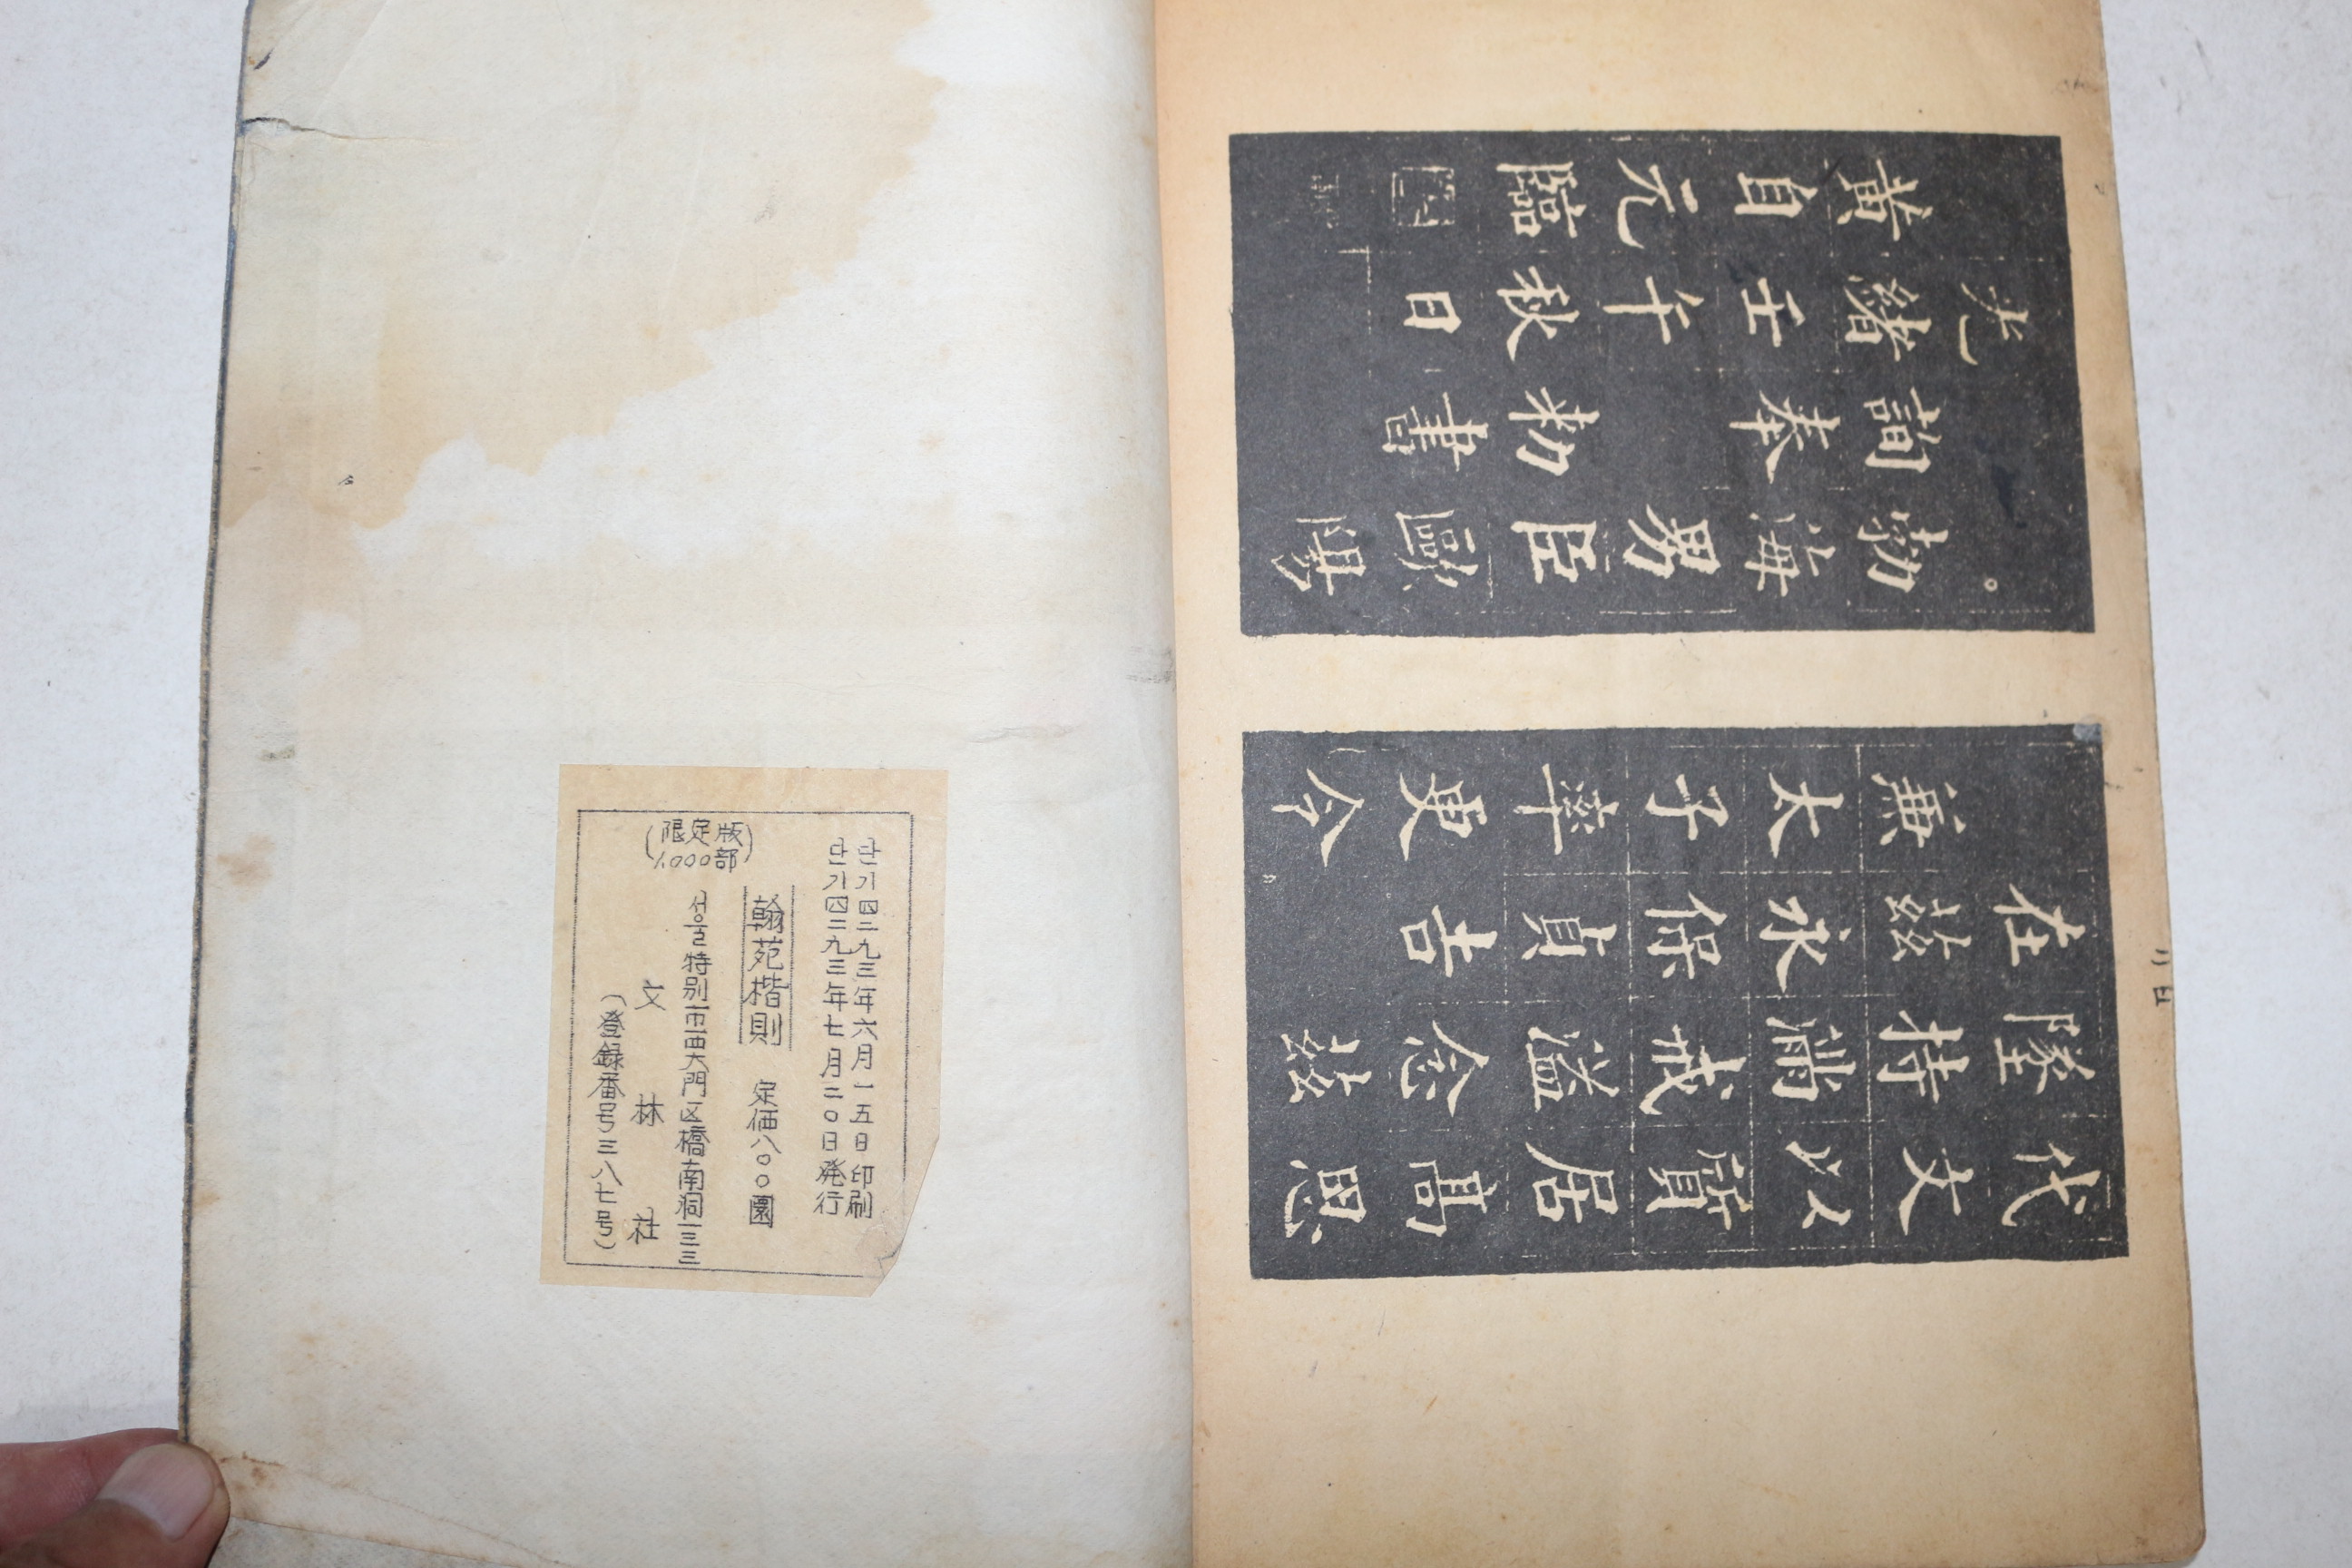 代文以質居高思
墜持滿戒溢念茲
在茲永保貞吉
兼太子率更令
勃海男臣歐陽
詢奉勅書
光緒壬午秋日
黃自元臨
단기四二九三年六月一五日 印刷
단기四二九三年七月二〇日 発行
翰苑楷則 定価八〇〇圜
(限定版
1,000部)
서울特別市西大門区橋南洞一三三
文林社
(登録番号三八七号)